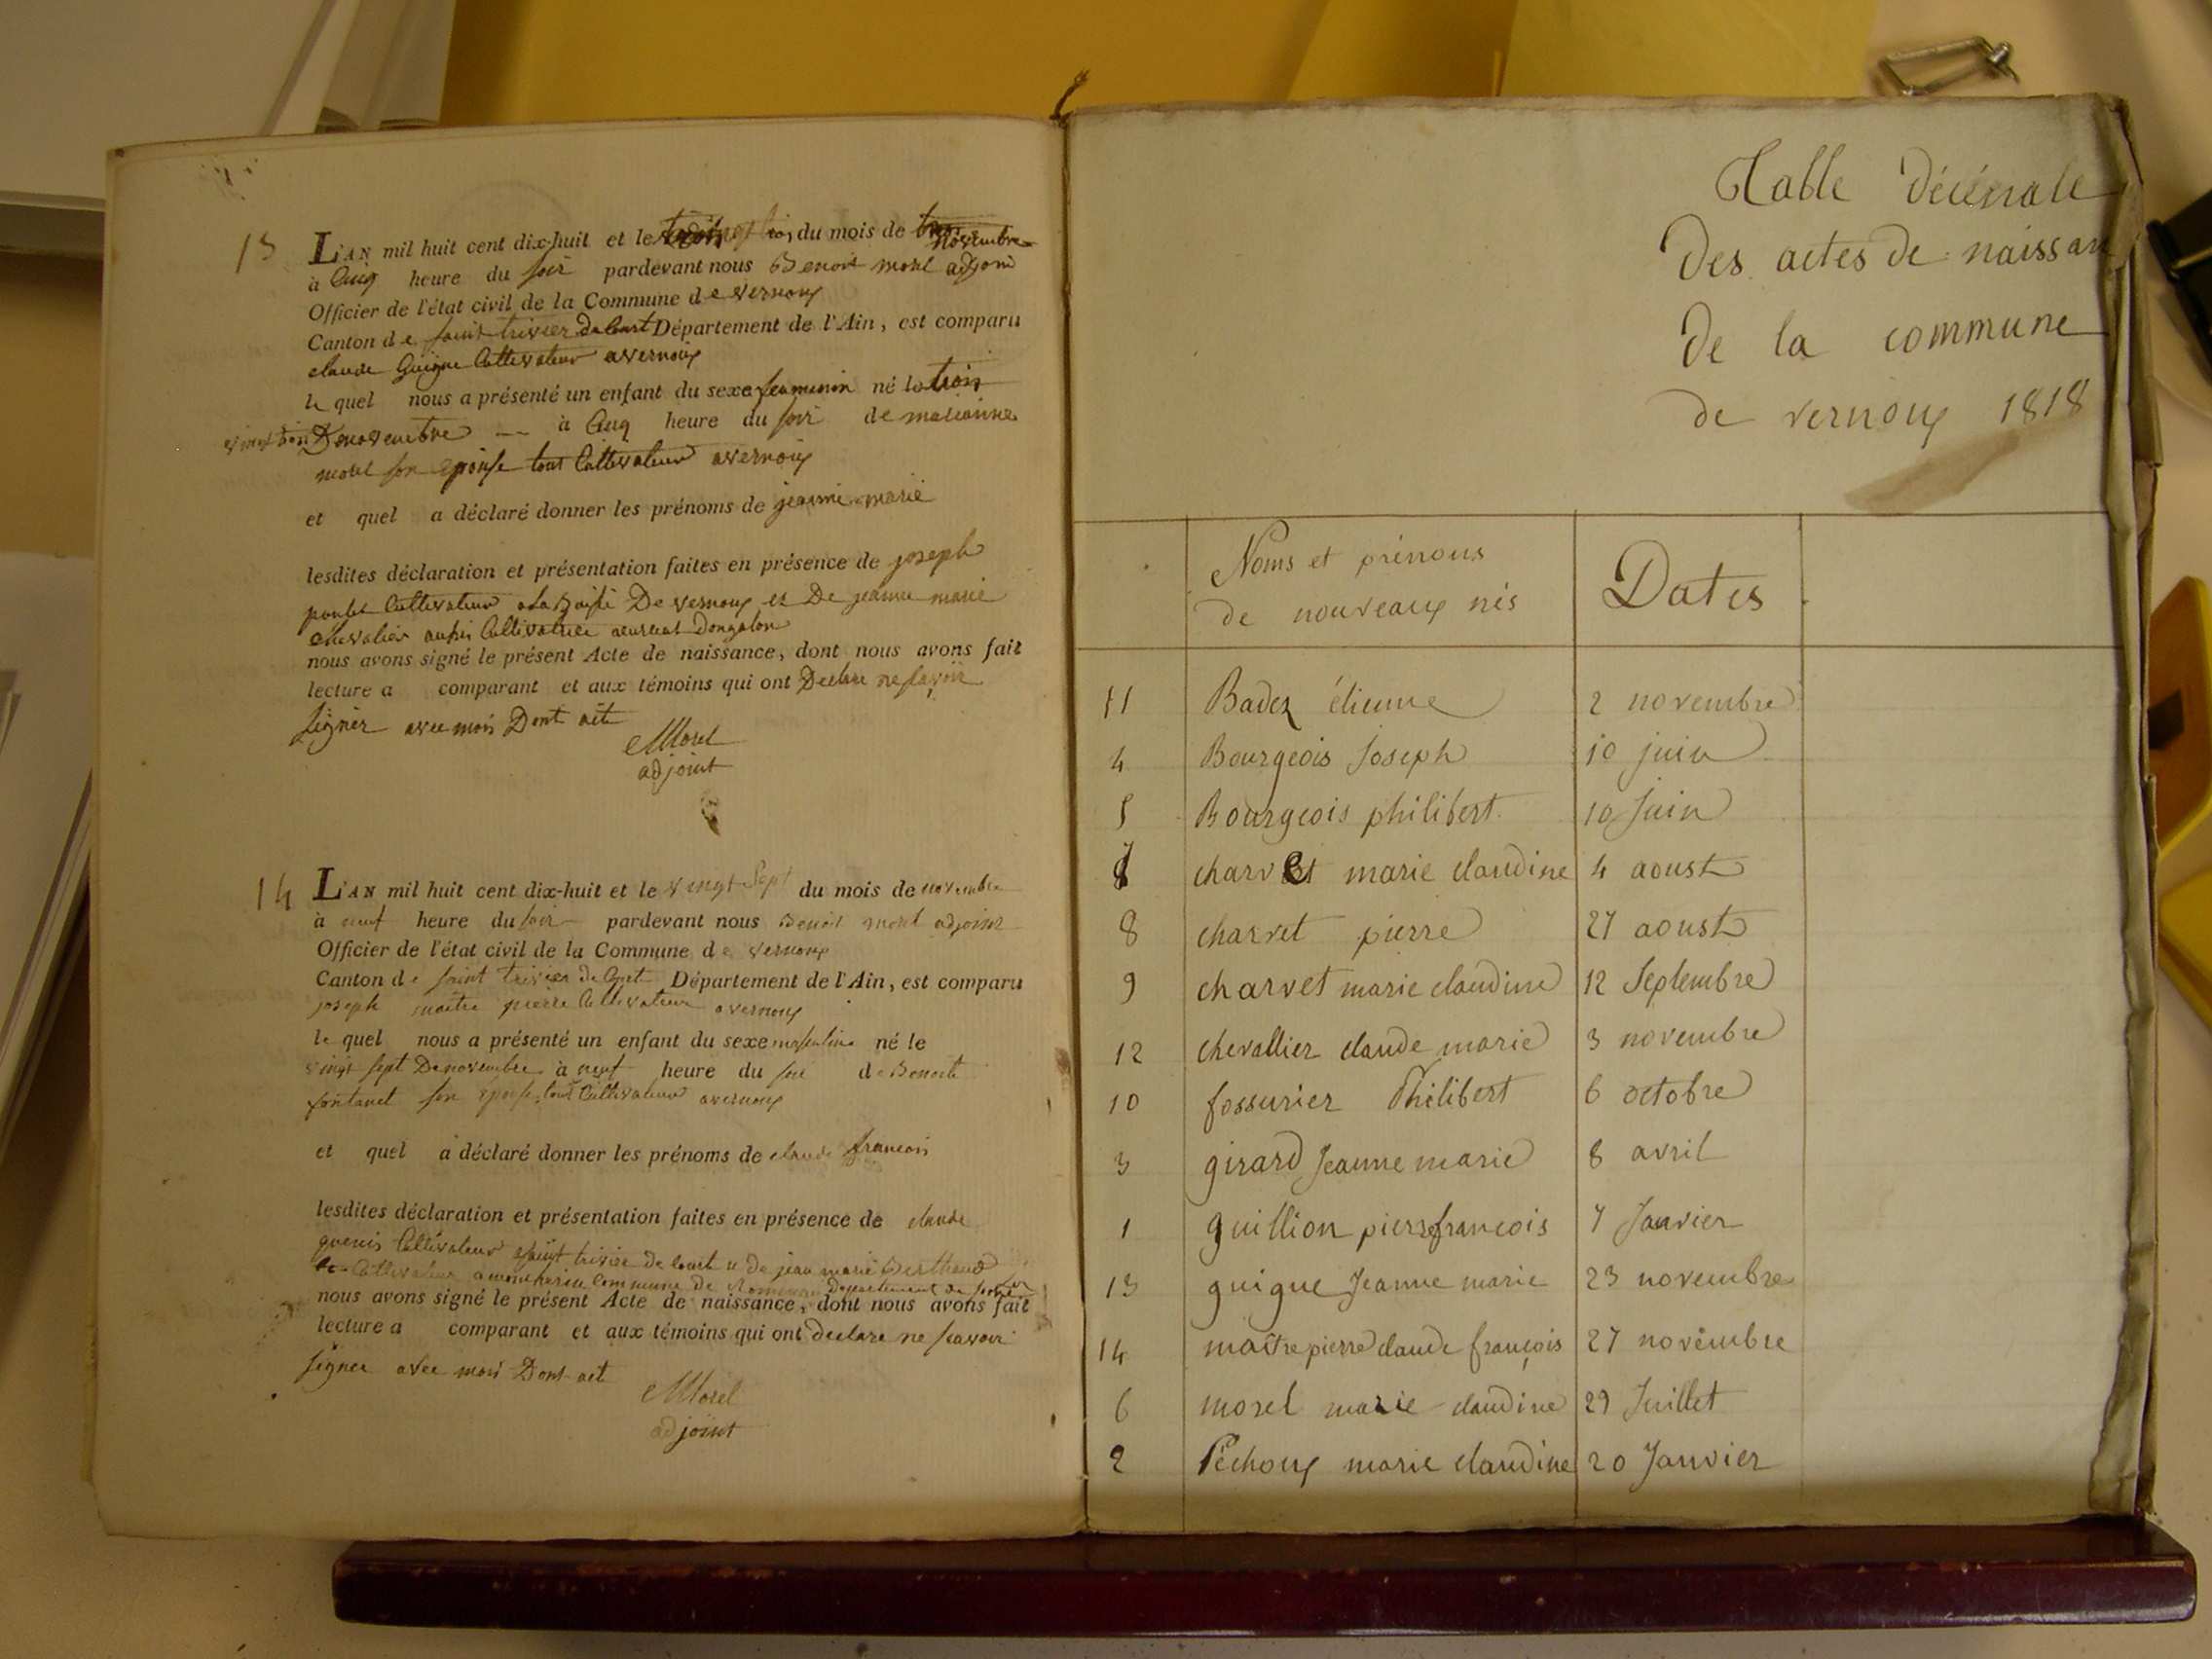 13
L'AN mil huit cent dix-huit et le vingt trois du mois de novembre
à cinq heure du soir pardevant nous Benoit morel adjoint
Officier de l'état civil de la Commune de vernoux
Canton de saint trivier de Court Département de l'Ain, est comparu
claude Guigue Cultivateur avernoux
le quel nous a présenté un enfant du sexe feaminin né le trois
vingt trois Denovembre à Cinq heure du soir de marianne
morel son epouse tous Cultivateur avernoux
et quel a déclaré donner les prénoms de jeanne marie
lesdites déclaration et présentation faites en présence de joseph
Cultivateur De vernoux et De jeanne marie
chevalier Cultivatrice
nous avons signé le présent Acte de naissance, dont nous avons fait
lecture a comparant et aux témoins qui ont Declare ne savoir
signer avec moi Dont act
Morel
adjoint
14
L'AN mil huit cent dix-huit et le vingt Sept du mois de novembre
à neuf heure du soir pardevant nous Benoit morel adjoint
Officier de l'état civil de la Commune de vernoux
Canton de saint trivier de Court Département de l'Ain, est comparu
joseph maitre pierre Cultivateur avernoux
le quel nous a présenté un enfant du sexe masculin né le
vingt sept Denovembre à neuf heure du soir de Benoite
fontanet son epouse tous Cultivateur avernoux
et quel a déclaré donner les prénoms de claude francois
lesdites déclaration et présentation faites en présence de claude
Cultivateur asaint trivier de Court et de jean marie Berthaud
Cultivateur Commune de Departement de
nous avons signé le présent Acte de naissance, dont nous avons fait
lecture a comparant et aux témoins qui ont declare ne scavoir
signer avec moi Dont act
Morel
adjoint
Table Décénale
Des actes de naissan
De la commune
de vernoux 1818
Noms et prénoms
de nouveaux nés
Dates
11 Badez étienne 2 novembre
4 Bourgeois Joseph 10 juin
5 Bourgeois philibert 10 Juin
7 charvet marie claudine 4 aoust
8 charvet pierre 27 aoust
9 charvet marie claudine 12 Septembre
12 chevallier claude marie 3 novembre
10 fossurier Philibert 6 octobre
3 girard Jeanne marie 8 avril
1 guillion pierre françois 7 Janvier
13 guigue Jeanne marie 23 novembre
14 maître pierre claude françois 27 novembre
6 morel marie claudine 29 Juillet
2 Péchoux marie claudine 20 Janvier